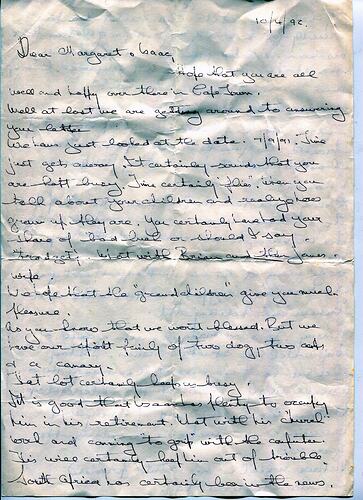 10/4/92.
Dear Margaret & Isaac,
Hope that you are all
well and happy over there in Cape Town.
Well at last we are getting around to answering
your letter
We have just looked at the date. Time
just gets away! It certainly sounds that you
are kept busy. Time certainly "flies", when you
talk about your children and realize how
grown up they are. You certainly have had your
share of "bad luck or should I say
tragedy, what with and then Jones
wife.
We hope that the "grandchildren" give you much
pleasure.
As you know that we wont blessed. But we
have our spoilt family of two dog, two cats
& a canary.
That lot certainly keep us busy.
It is good that Isaac has plenty to occupy
him in his retirement. What with his church
work and coming to grips with the
This will certainly keep him out of trouble.
South Africa has certainly been in the news.